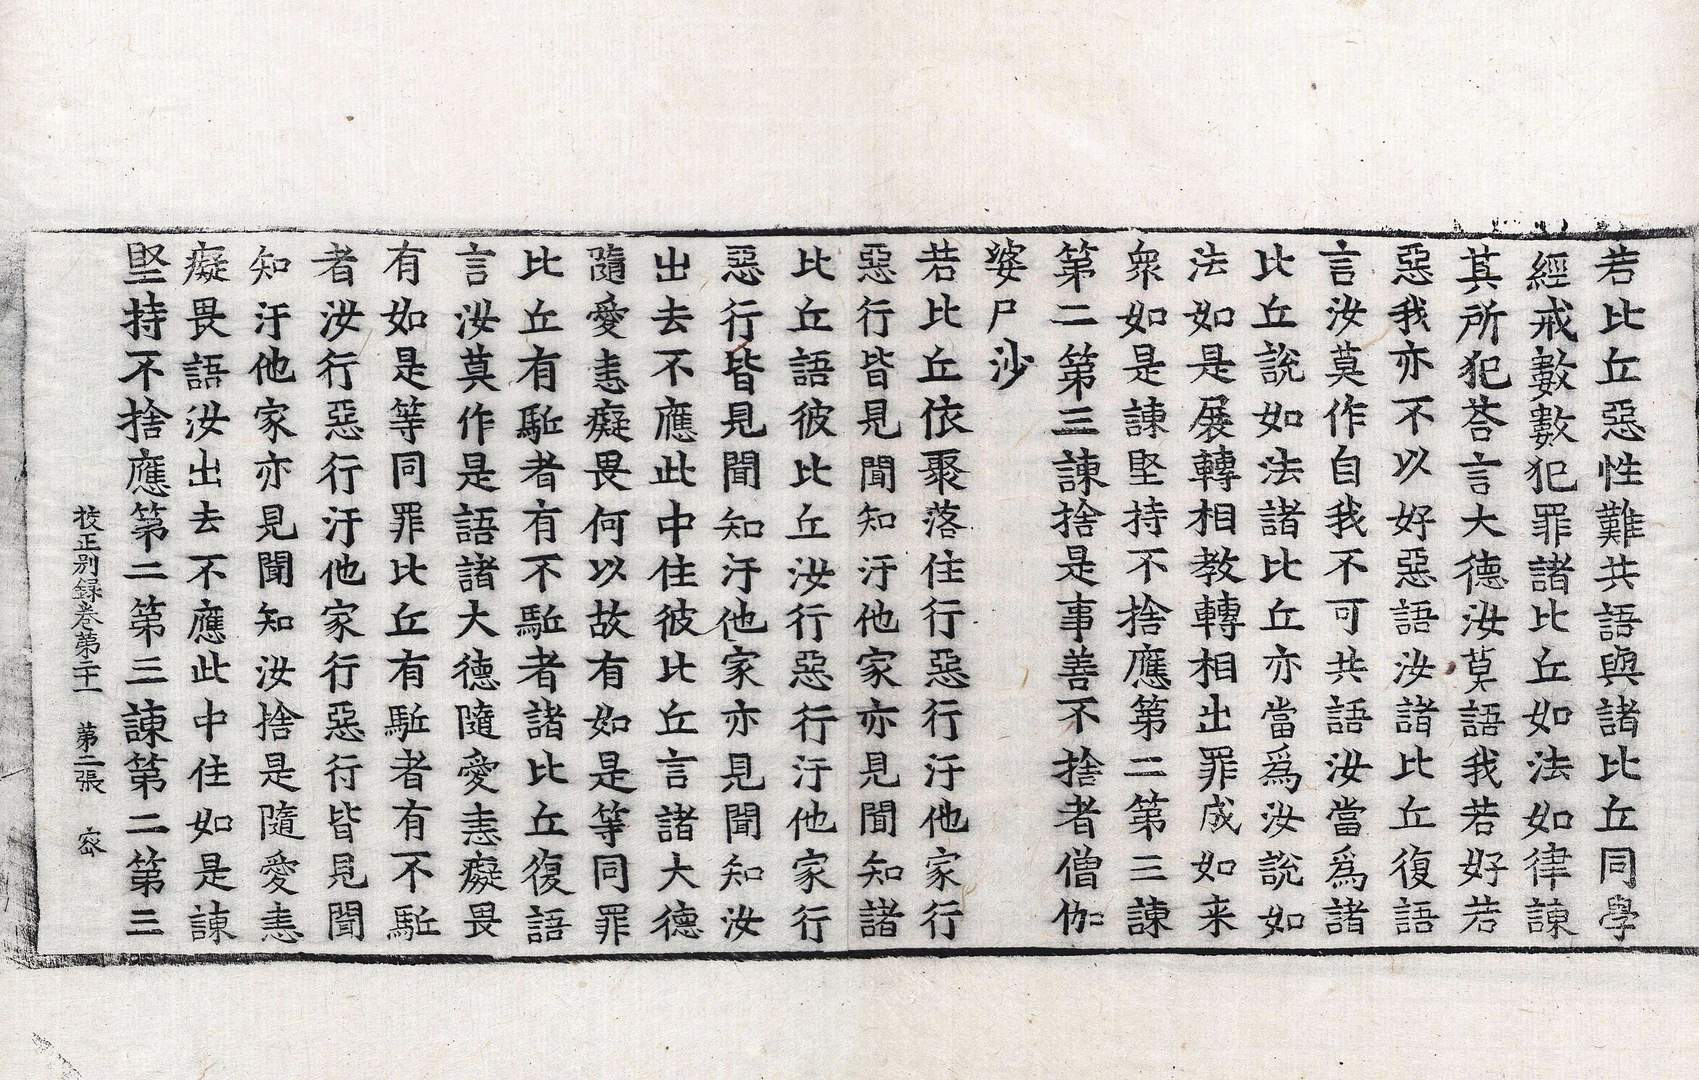 若比丘惡性難共語與諸比丘同學
經戒數數犯罪諸比丘如法如律諫
其所犯荅言大德汝莫語我若好若
惡我亦不以好惡語汝諸比丘復語
言汝莫作自我不可共語汝當爲諸
比丘說如法諸比丘亦當爲汝說如
法如是展轉相教轉相出罪成如来
衆如是諫堅持不捨應第二第三諫
第二第三諫捨是事善不捨者僧伽
婆尸沙
若比丘依聚落住行惡行汙他家行
惡行皆見聞知汙他家亦見聞知諸
比丘語彼比丘汝行惡行汙他家行
惡行皆見聞知汙他家亦見聞知汝
出去不應此中住彼比丘言諸大德
隨愛恚癡畏何以故有如是等同罪
比丘有駈者有不駈者諸比丘復語
言汝莫作是語諸大德隨愛恚癡畏
有如是等同罪比丘有駈者有不駈
者汝行惡行汙他家行惡行皆見聞
知汙他家亦見聞知汝捨是隨愛恚
癡畏語汝出去不應此中住如是諫
堅持不捨應第二第三諫第二第三
挍正別録卷苐二十一 苐二張 宻